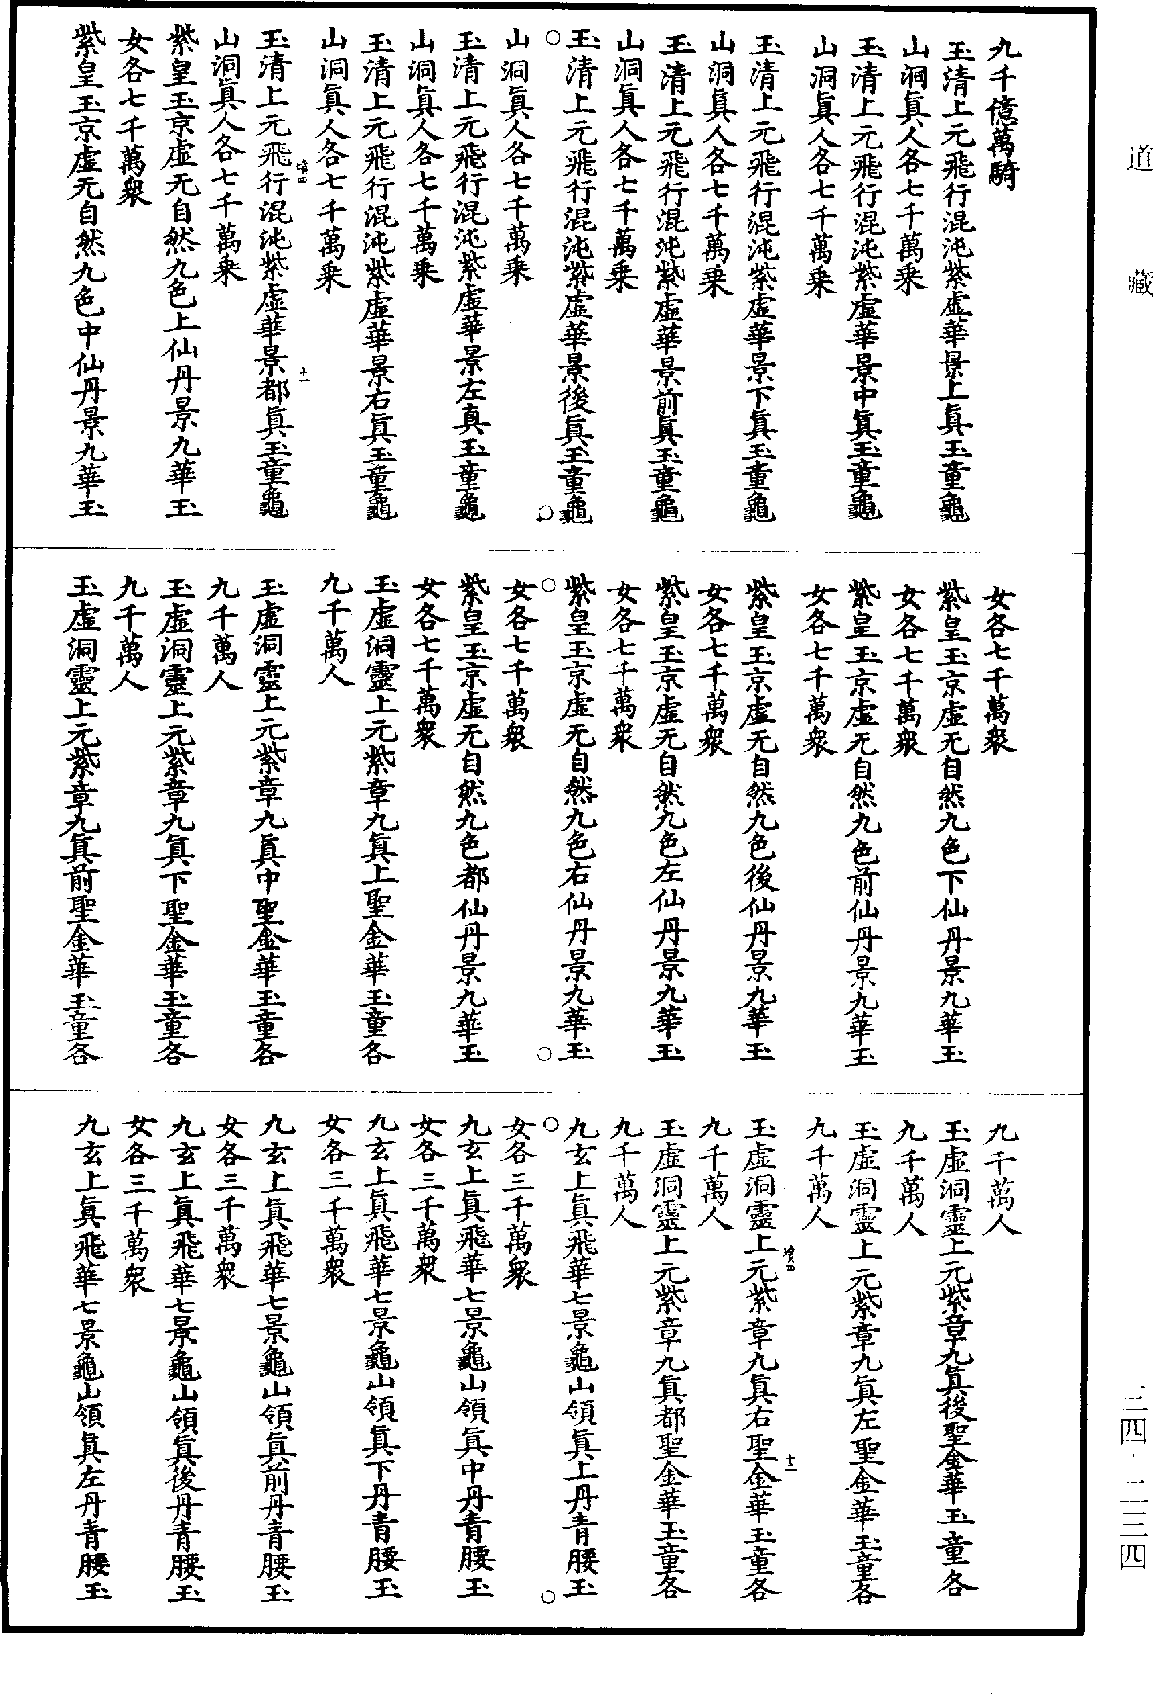 道藏
九千億萬騎
玉清上元飛行混沌紫虛華景上真玉童龜
山洞真人各七千萬乘
玉清上元飛行混沌紫虛華景中真玉童龜
山洞真人各七千萬乘
玉清上元飛行混沌紫虛華景下真玉童龜
山洞真人各七千萬乘
玉清上元飛行混沌紫虛華景前真玉童龜
山洞真人各七千萬乘
玉清上元飛行混沌紫虛華景後真玉童龜
山洞真人各七千萬乘
玉清上元飛行混沌紫虛華景左真玉童龜
山洞真人各七千萬乘
玉清上元飛行混沌紫虛華景右真玉童龜
山洞真人各七千萬乘
玉清上元飛行混沌紫虛華景都真玉童龜
山洞真人各七千萬乘
紫皇玉京虛无自然九色上仙丹景九華玉
女各七千萬眾
紫皇玉京虛无自然九色中仙丹景九華玉
女各七千萬眾
紫皇玉京虛无自然九色下仙丹景九華玉
女各七千萬眾
紫皇玉京虛无自然九色前仙丹景九華玉
女各七千萬眾
紫皇玉京虛无自然九色後仙丹景九華玉
女各七千萬眾
紫皇玉京虛无自然九色左仙丹景九華玉
女各七千萬眾
紫皇玉京虛无自然九色右仙丹景九華玉
女各七千萬眾
紫皇玉京虛无自然九色都仙丹景九華玉
女各七千萬眾
玉虛洞靈上元紫章九真上聖金華玉童各
九千萬人
玉虛洞靈上元紫章九真中聖金華玉童各
九千萬人
玉虛洞靈上元紫章九真下聖金華玉童各
九千萬人
玉虛洞靈上元紫章九真前聖金華玉童各
九千萬人
玉虛洞靈上元紫章九真後聖金華玉童各
九千萬人
玉虛洞靈上元紫章九真左聖金華玉童各
九千萬人
玉虛洞靈上元紫章九真右聖金華玉童各
九千萬人
玉虛洞靈上元紫章九真都聖金華玉童各
九千萬人
九玄上真飛華七景龜山領真上丹青腰玉
女各三千萬眾
九玄上真飛華七景龜山領真中丹青腰玉
女各三千萬眾
九玄上真飛華七景龜山領真下丹青腰玉
女各三千萬眾
九玄上真飛華七景龜山領真前丹青腰玉
女各三千萬眾
九玄上真飛華七景龜山領真後丹青腰玉
女各三千萬眾
九玄上真飛華七景龜山領真左丹青腰玉
三四·二三四